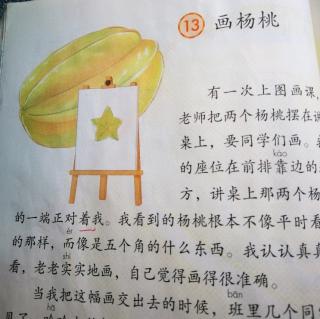 13 画杨桃
有一次上图画课，
老师把两个杨桃摆在
桌上，要同学们画。
kào
的座位在前排靠边的
方，讲桌上那两个杨
的一端正对着我。我看到的杨桃根本不像平时看
ér
的那样，而像是五个角的什么东西。我认认真
shí
看，老老实实地画，自己觉得画得很准确。
bān
当我把这幅画交出去的时候，班里几个同
hā